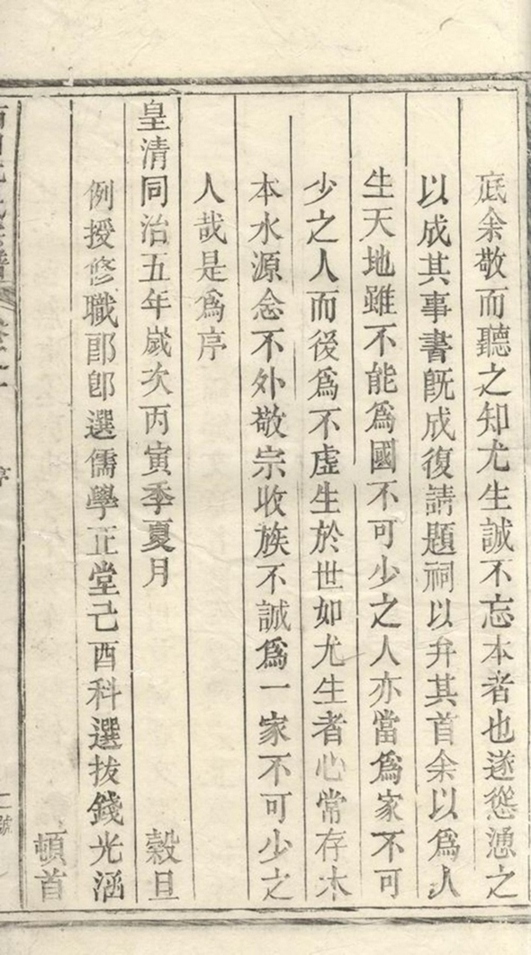 底余敬而聽之知尤生誠不忘本者也遂慫慂之
以成其事書旣成復請題祠以弁其首余以爲人
生天地雖不能爲國不可少之人亦當爲家不可
少之人而後爲不虛生於世如尤生者心常存木
本水源念不外敬宗收族不誠爲一家不可少之
人哉是爲序
皇清同治五年歲次丙寅季夏月 穀旦
例授修職郎卽選儒學正堂己酉科選拔錢光涵
頓首
序